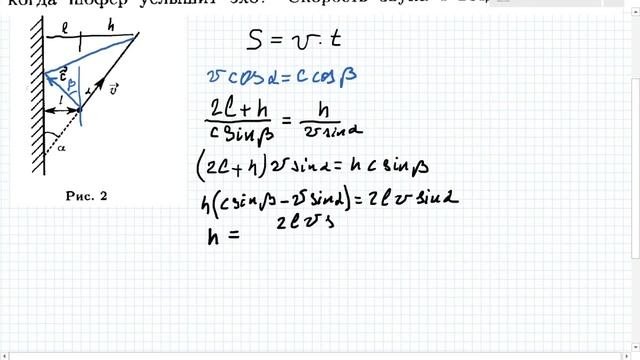 когда шофер услышит эхо? Скорость звука
ℓ h
c⃗ β α v⃗
l
α
Рис. 2
S = v · t
v cos α = c cos β
(2ℓ + h)/(c sin β) = h/(v sin α)
(2ℓ + h) v sin α = h c sin β
h(c sin β − v sin α) = 2ℓ v sin α
h = 2ℓ v s